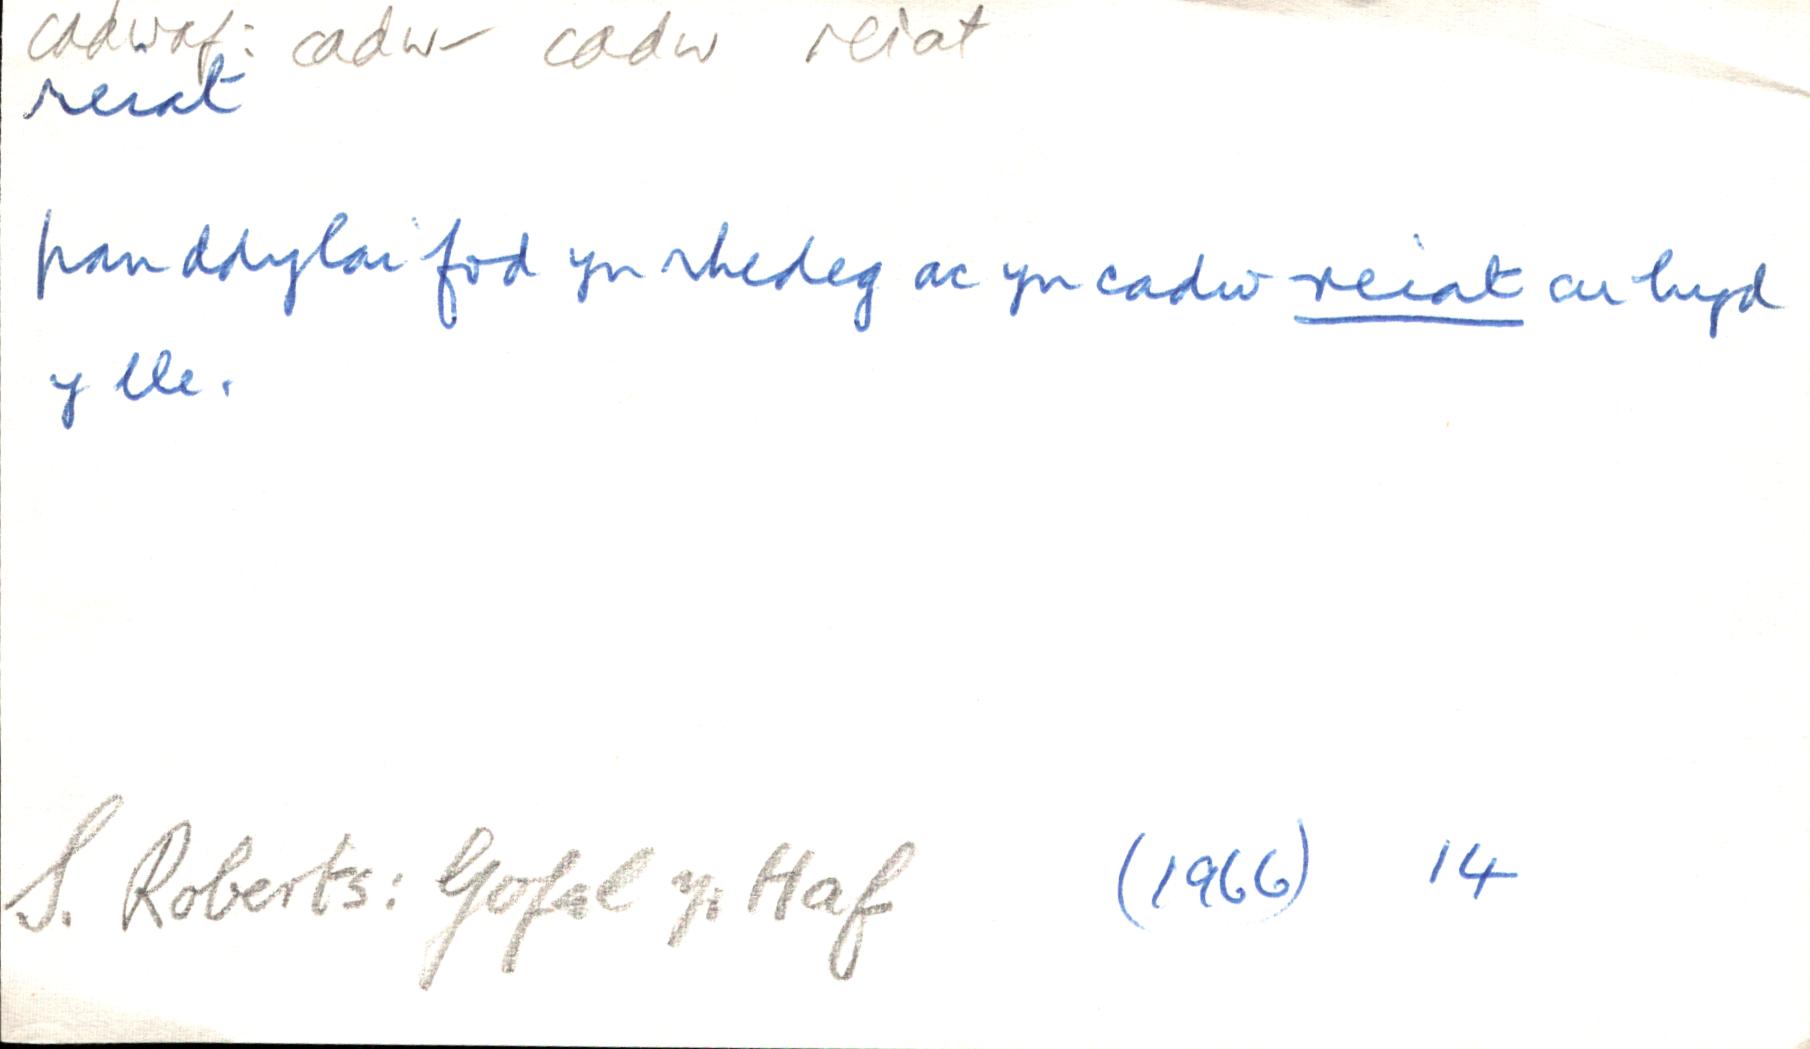 cadwaf: cadw- cadw reiat
reiat
pan ddylai fod yn rhedeg ac yn cadw reiat ar hyd
y lle.
S. Roberts: Gofal yr Haf (1966) 14